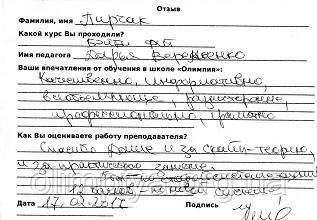 Отзыв
Фамилия, имя Пирчак
Какой курс Вы проходили?
Бэйби фит
Имя педагога Дарья Вороненко
Ваши впечатления от обучения в школе «Олимпия»:
Качественно, информативно,
разносторонне,
профессионально, грамотно
Как Вы оцениваете работу преподавателя?
Спасибо Даше и за скайп-теорию,
и за практические занятия.
Дата 17.09.2017 Подпись